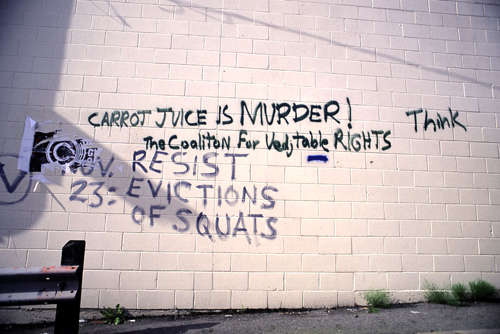 CARROT JUICE IS MURDER! Think
The Coaliton For Vedjtable RIGHTS
NOV. RESIST
23: EVICTIONS
OF SQUATS